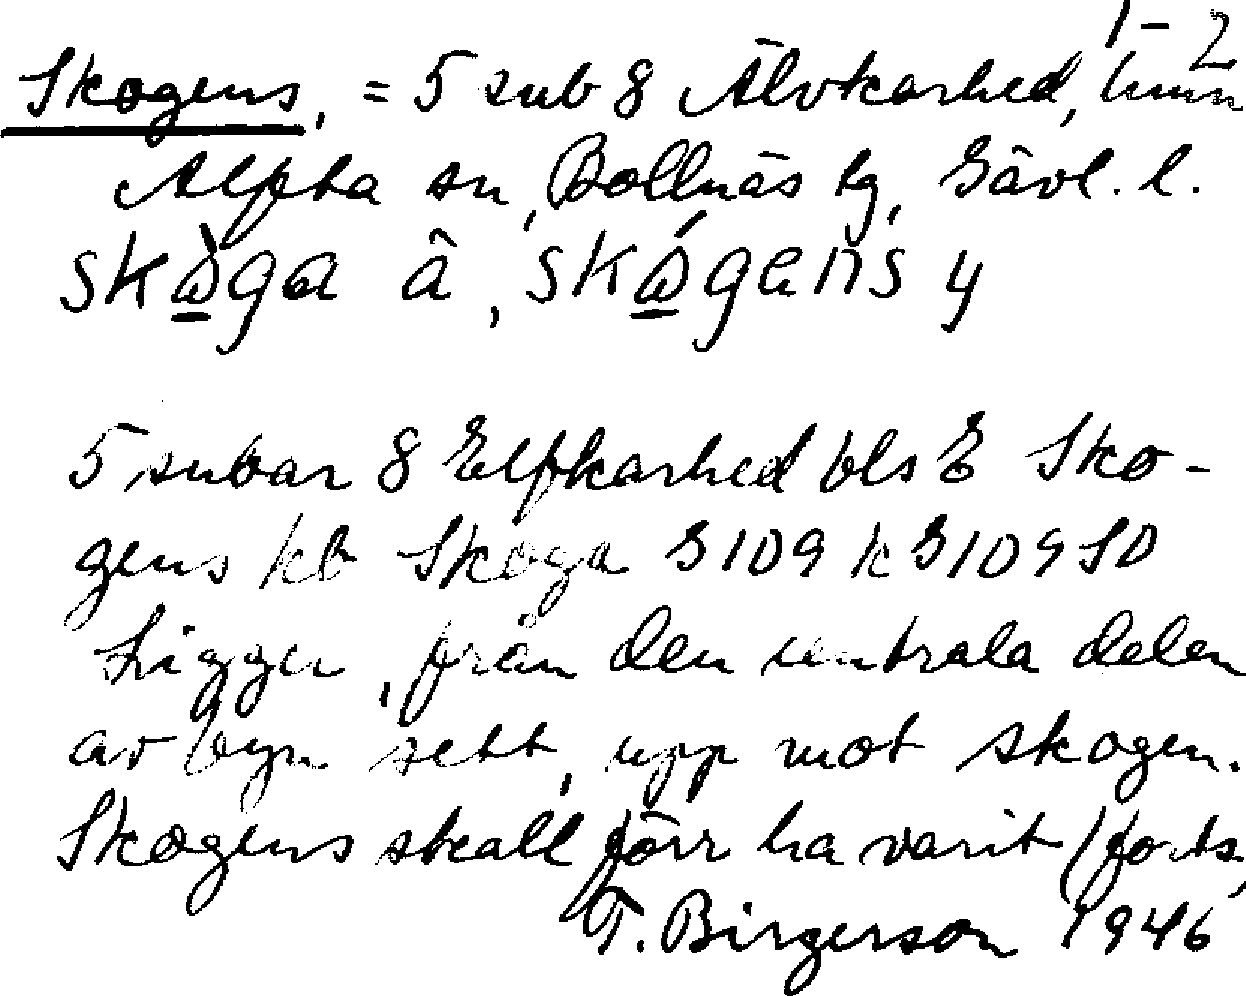 1-2
Skogens, = 5 sub 8 Älvkarhed, hmn
Alfta sn, Bollnäs tg, Gävl. l.
skò̱ga â, skó̱gens y
5 subar 8 Elfkarhed bls E Sko-
gens kb Skoga G109 k G109 SO
Ligger, från den centrala delen
av byn sett, upp mot skogen.
Skogens skall förr ha varit (forts,
T. Birgerson 1946